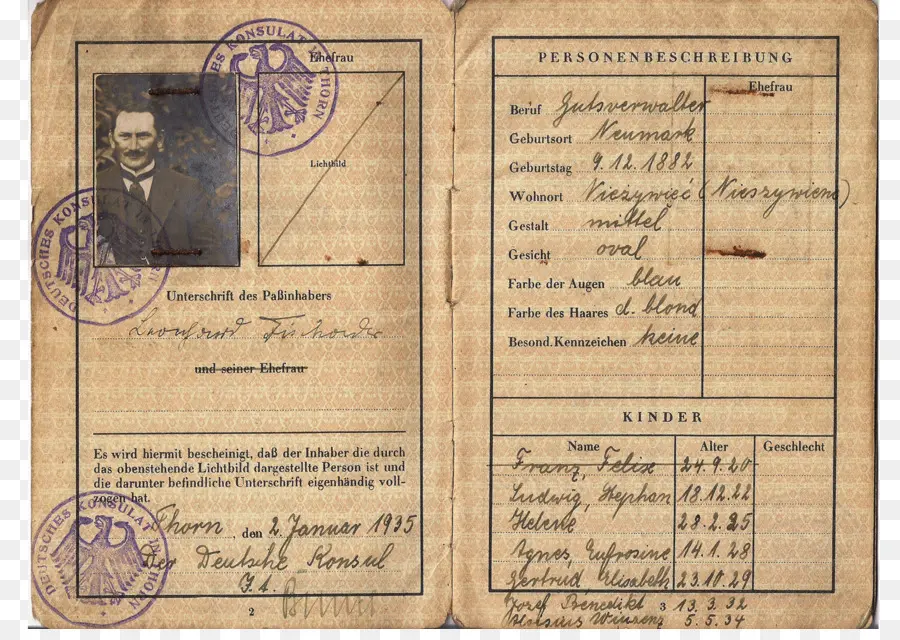 DEUTSCHES KONSULAT IN THORN
Ehefrau
Lichtbild
DEUTSCHES KONSULAT IN THORN
Unterschrift des Paßinhabers
Leonhard
und seiner Ehefrau
Es wird hiermit bescheinigt, daß der Inhaber die durch
das obenstehende Lichtbild dargestellte Person ist und
die darunter befindliche Unterschrift eigenhändig voll-
zogen hat.
DEUTSCHES KONSULAT IN THORN
Thorn, den 2. Januar 1935
Der Deutsche Konsul
2
PERSONENBESCHREIBUNG
Ehefrau
Beruf Gutsverwalter
Geburtsort Neumark
Geburtstag 9.12.1882
Wohnort Nieżywięć (Nieszywienc)
Gestalt mittel
Gesicht oval
Farbe der Augen blau
Farbe des Haares d. blond
Besond. Kennzeichen keine
KINDER
Name Alter Geschlecht
Franz, Felix 24.9.20
Ludwig, Stephan 18.12.22
Helene 28.2.25
Agnes, Eufrosine 14.1.28
Gertrud Elisabeth 23.10.29
Josef Benedikt 13.3.32
3
5.5.34